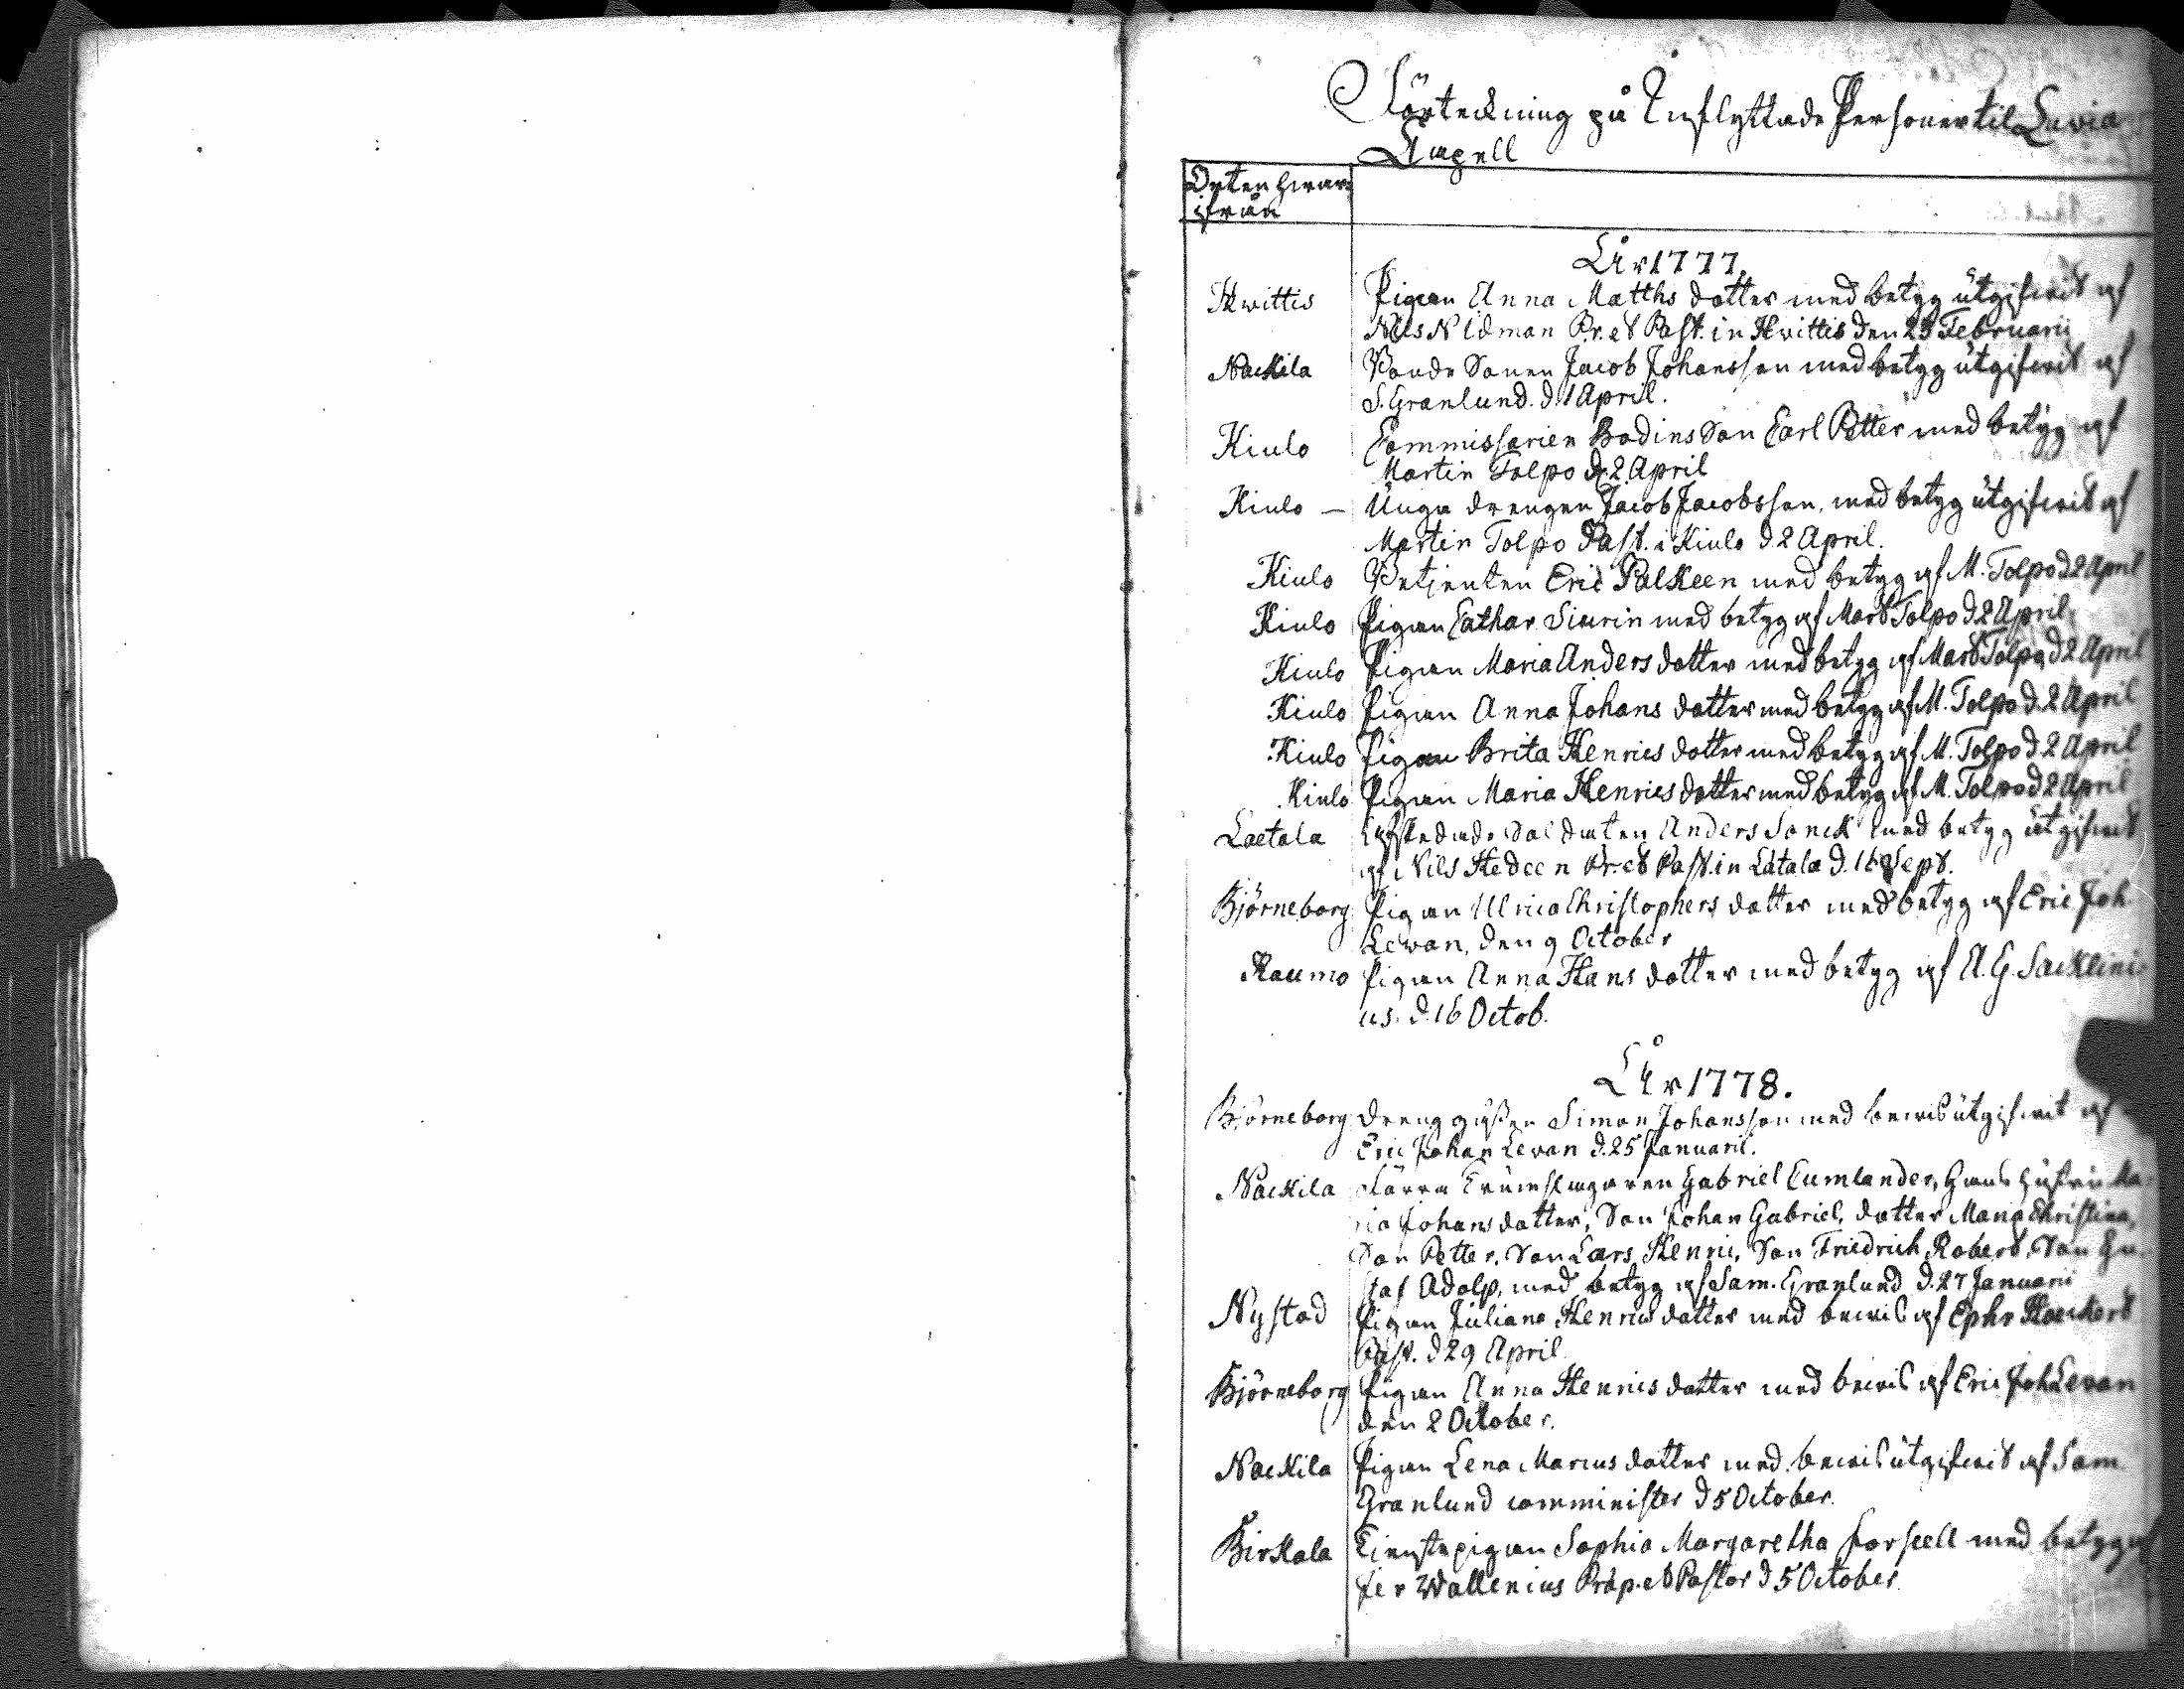 Förteckning på Inflyttade Personer til Luvia
Capell
Orten hwar
ifrån
År 1777.
Hwittis Pigan Anna Matths dotter med betyg utgifwit af
Nils Idman Pr. et Past. in Hvittis den 23 Februarii
Nackila Bonde Sonen Jacob Johansson med betyg utgifwit af
S. Granlund. d. 1 April.
Kiulo Commissarien Bodins Son Carl Petter med betyg af
Martin Tolpo d. 2 April
Kiulo — Unga drengen Jacob Jacobsson, med betyg utgifwit af
Martin Tolpo Past. i Kiulo d. 2 April.
Kiulo Betjenten Eric Palkeen med betyg af M. Tolpo d 2 April
Kiulo Pigan Cathar. Siurin med betyg af Mart Tolpo d 2 April
Kiulo Pigan Maria Anders dotter med betyg af Mart Tolpo d 2 April
Kiulo Pigan Anna Johans dotter med betyg af M. Tolpo d. 2 April
Kiulo Pigan Brita Henrics dotter med betyg af M. Tolpo d 2 April
Kiulo Pigan Maria Henrics dotter med betyg af M. Tolpo d 2 April
Laetala Afskedade Soldaten Anders Sonck med betyg utgifwit
af Nils Hedeen Pr. et Past. in Låtala d. 16 Sept.
Björneborg Pigan Ulrica Christophers dotter med betyg af Eric Joh.
Levan, den 9 October
Raumo Pigan Anna Hans dotter med betyg af A. G. Sacklini-
us. d. 16 Octob.
År 1778.
Björneborg Dreng gåssen Simon Johansson med bewis utgifwit af
Eric Johan Levan d. 25 Januarii.
Nackila Förra Trumslagaren Gabriel Cumlander, hans hustru Ma-
ria Johans dotter, Son Johan Gabriel, dotter Maria Christina,
Son Petter, Son Lars Henric, Son Friedrich Robert, Son Gu-
staf Adolp, med betyg af Sam. Granlund d. 27 Januarii
Nystad Pigan Juliana Henrics dotter med bewis af Ephr
Past. d 29 April
Björneborg Pigan Anna Henrics dotter med bewis af Eric Joh Levan
den 2 October.
Nackila Pigan Lena Marcus dotter med bewis utgifwit af Sam.
Granlund comminister d 5 October.
Birkala Tienstepigan Sophia Margaretha Forssell med betyg af
Per Wallenius Præp. et Pastor d 5 October.